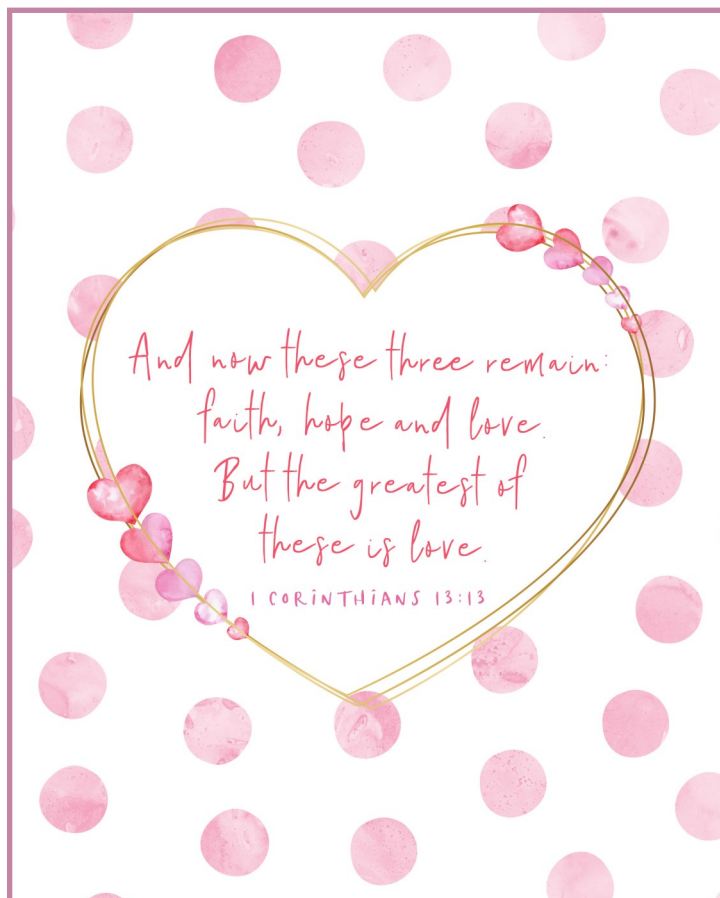 And now these three remain:
faith, hope and love.
But the greatest of
these is love.
1 CORINTHIANS 13:13